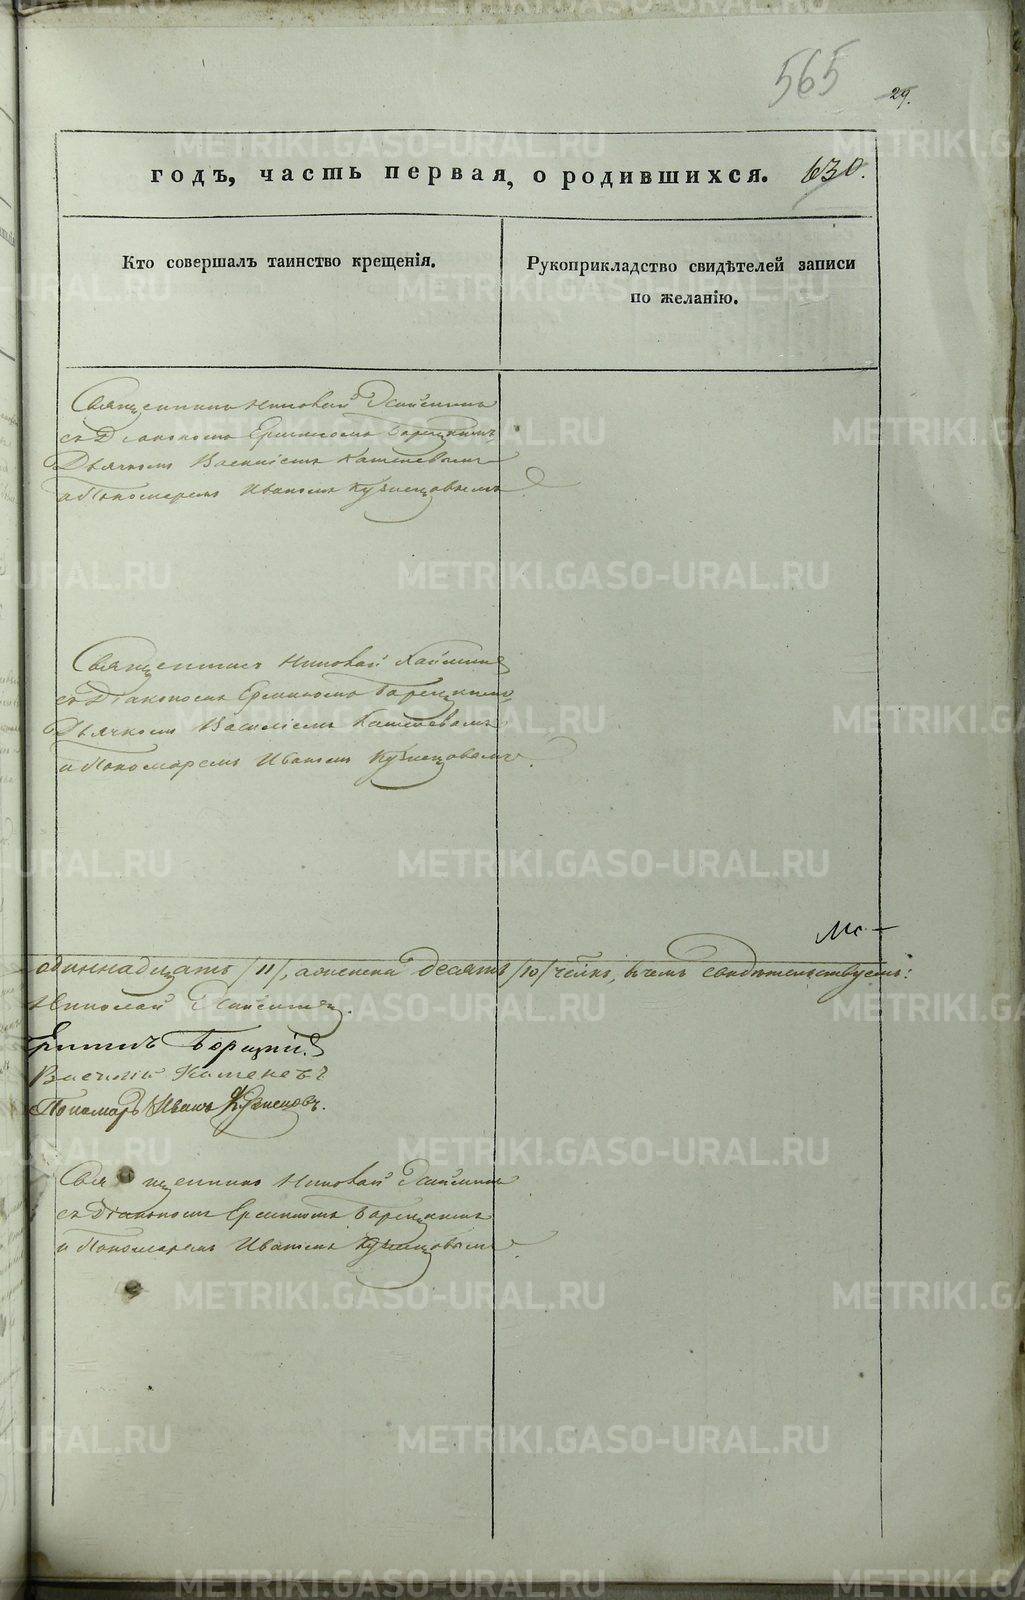 565
29.
годъ, часть первая, о родившихся. 630.
Кто совершалъ таинство крещенія.
Рукоприкладство свидѣтелей записи
по желанію.
Священникъ Николай
съ Діакономъ Ермиломъ Борецкимъ
Дьячкомъ Василіемъ Каменевымъ
и Пономаремъ Иваномъ Кузнецовымъ
Священникъ Николай
съ Діакономъ Ермиломъ Борецкимъ
Дьячкомъ Василіемъ Каменевымъ
и Пономаремъ Иваномъ Кузнецовымъ.
одиннадцать /11/, а женска десять /10/ челкъ, в чемъ свидѣтельствуемъ:
Николай
Борецкій
Василій Каменевъ
Пономарь Иванъ Кузнецовъ.
Священникъ Николай
съ Діакономъ Ермиломъ Борецкимъ
и Пономаремъ Иваномъ Кузнецовымъ.
METRIKI.GASO-URAL.RU